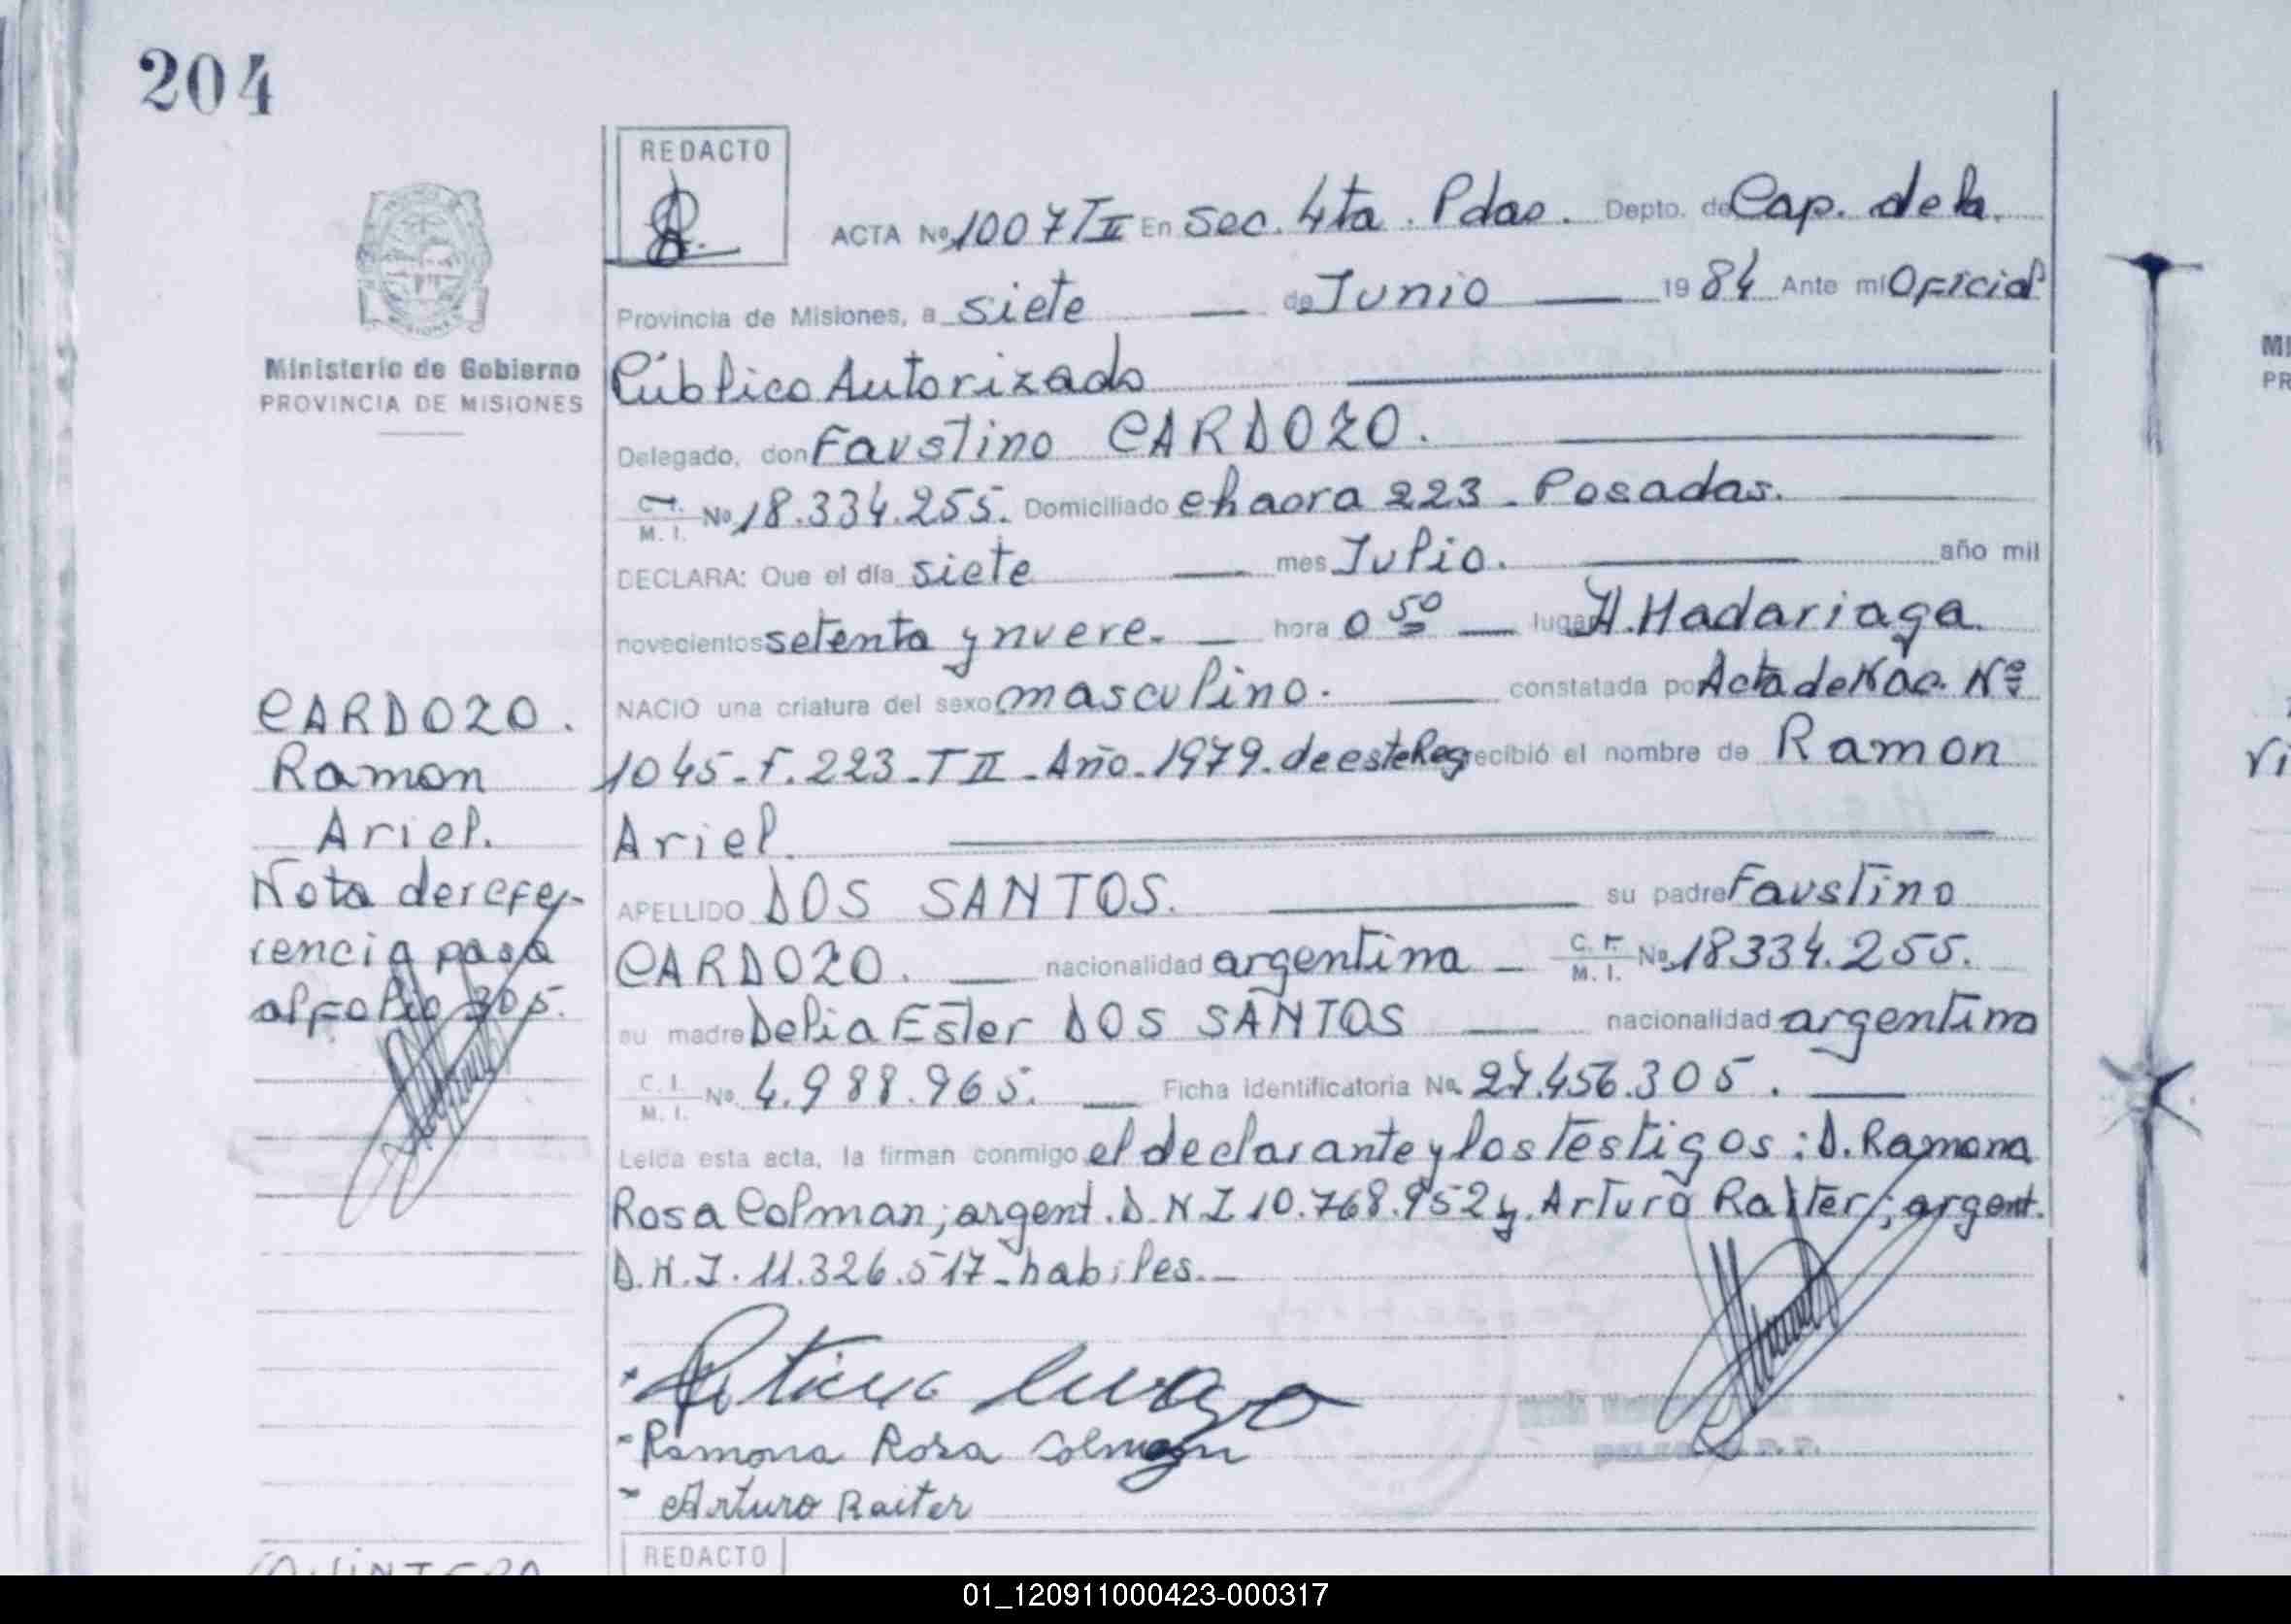 204
REDACTO
ACTA Nº 1007 T II En Sec. 4ta. Pdas. Depto. de Cap. de la
Provincia de Misiones, a siete de Junio 1984 Ante mi Oficial
Ministerio de Gobierno
PROVINCIA DE MISIONES
Público Autorizado
Delegado, don Faustino CARDOZO.
C. I. M. I. Nº 18.334.255. Domiciliado chacra 223 - Posadas.
DECLARA: Que el día siete mes Julio. año mil
novecientos setenta y nueve. hora 0 50 lugar H. Madariaga.
NACIO una criatura del sexo masculino. constatada por Acta de Nac. Nº
1045 - F. 223 - T II - Año. 1979. de este Reg recibió el nombre de Ramon
Ariel.
APELLIDO DOS SANTOS. su padre Faustino
CARDOZO. nacionalidad argentina C. I. M. I. Nº 18334.255.
su madre Delia Ester DOS SANTOS nacionalidad argentina
C. I. M. I. Nº 4.988.965. Ficha identificatoria Nº 27.456.305.
Leída esta acta, la firman conmigo el declarante y los testigos: D. Ramona
Rosa Colman; argent. D.N.I 10.768.952 y. Arturo Raiter; argent.
D.N.I. 11.326.517 - habiles.
CARDOZO.
Ramon
Ariel.
Nota de refe-
rencia pasa
al folio 305.
Ramona Rosa Colman
Arturo Raiter
REDACTO
01_120911000423-000317